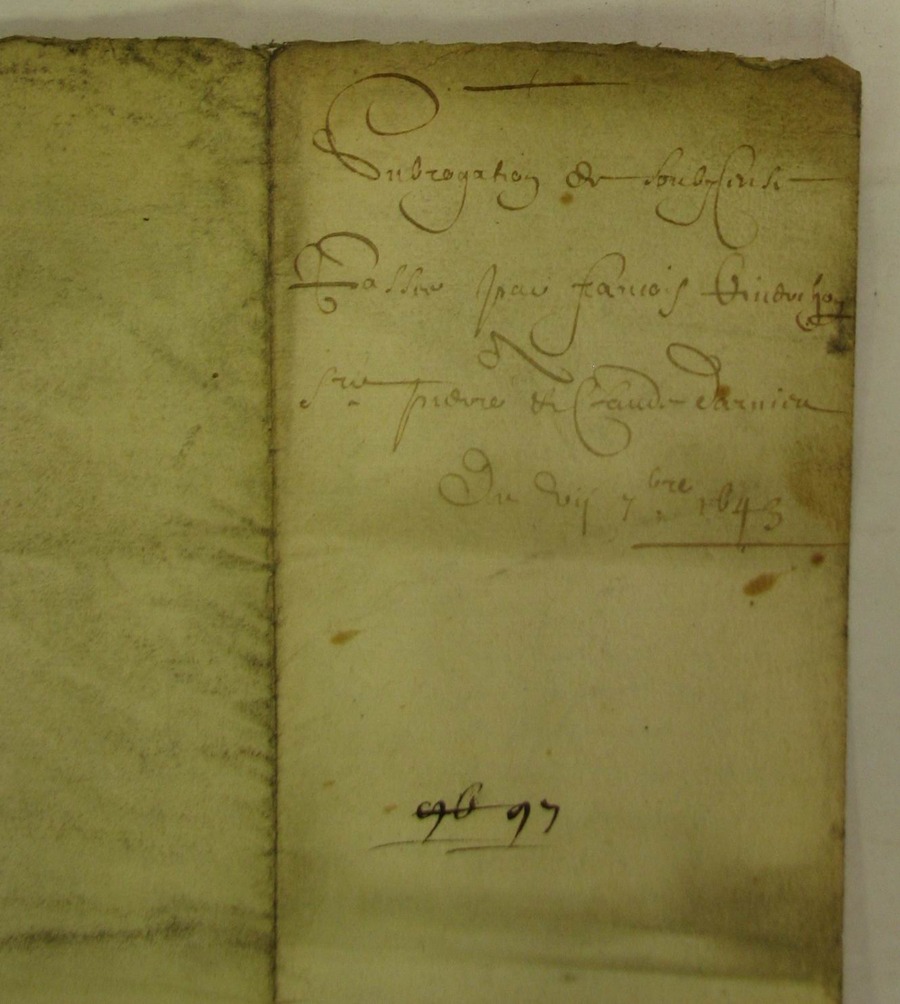 Subrogation de soubz
Passée par francois
A
Sre pierre et Claude darnieu
Du vij 7bre 1643
96 97